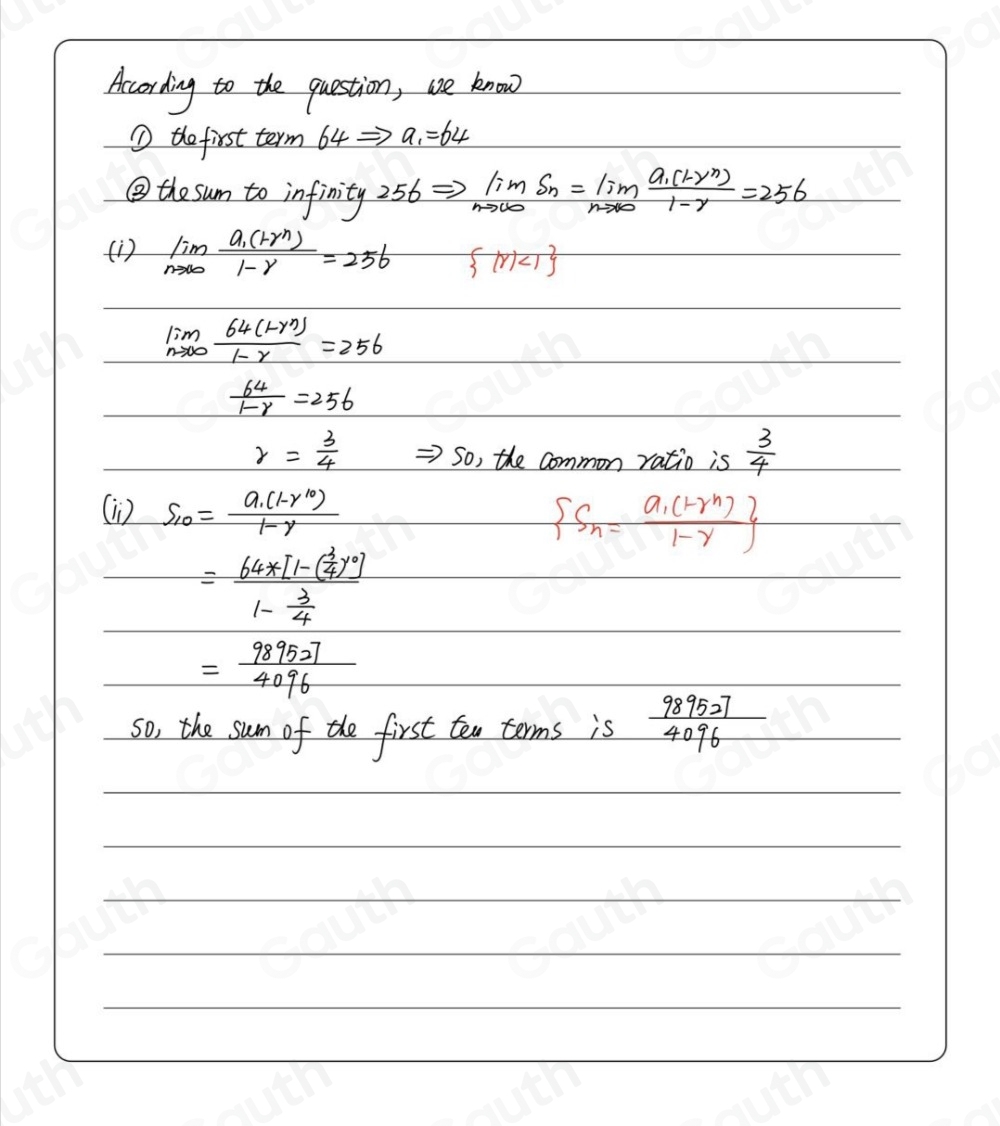 According to the question, we know
① the first term 64 ⇒ a₁=64
② the sum to infinity 256 ⇒ lim n→∞ Sn = lim n→∞ a₁(1-rⁿ)/(1-r) =256
(i) lim n→∞ a₁(1-rⁿ)/(1-r) =256 {|r|<1}
lim n→∞ 64(1-rⁿ)/(1-r) =256
64/(1-r) =256
r = 3/4 ⇒ so, the common ratio is 3/4
(ii) S₁₀= a₁(1-r¹⁰)/(1-r) {Sn= a₁(1-rⁿ)/(1-r)}
= 64*[1-(3/4)¹⁰]/(1-3/4)
= 989527/4096
so, the sum of the first ten terms is 989527/4096
Gauth